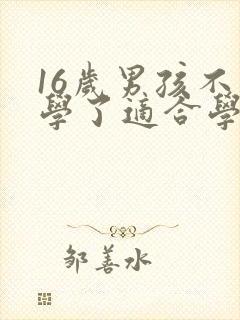 16歲男孩不
學了適合學
邹善水